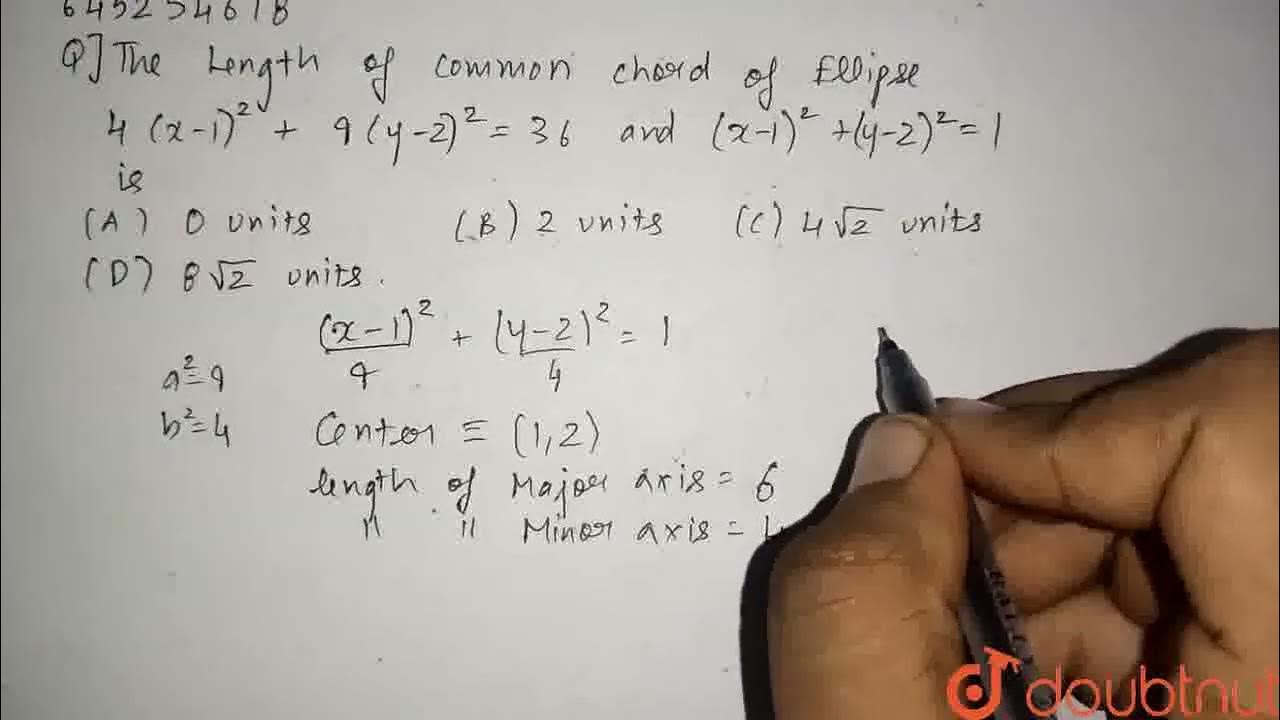 645254618
Q] The Length of common chord of Ellipse
4 (x-1)² + 9 (y-2)² = 36 and (x-1)² + (y-2)² = 1
is
(A) 0 units (B) 2 units (C) 4√2 units
(D) 8√2 units.
(x-1)²/9 + (y-2)²/4 = 1
a²=9
b²=4
Center ≡ (1,2)
length of Major axis = 6
" " Minor axis = 4
doubtnut